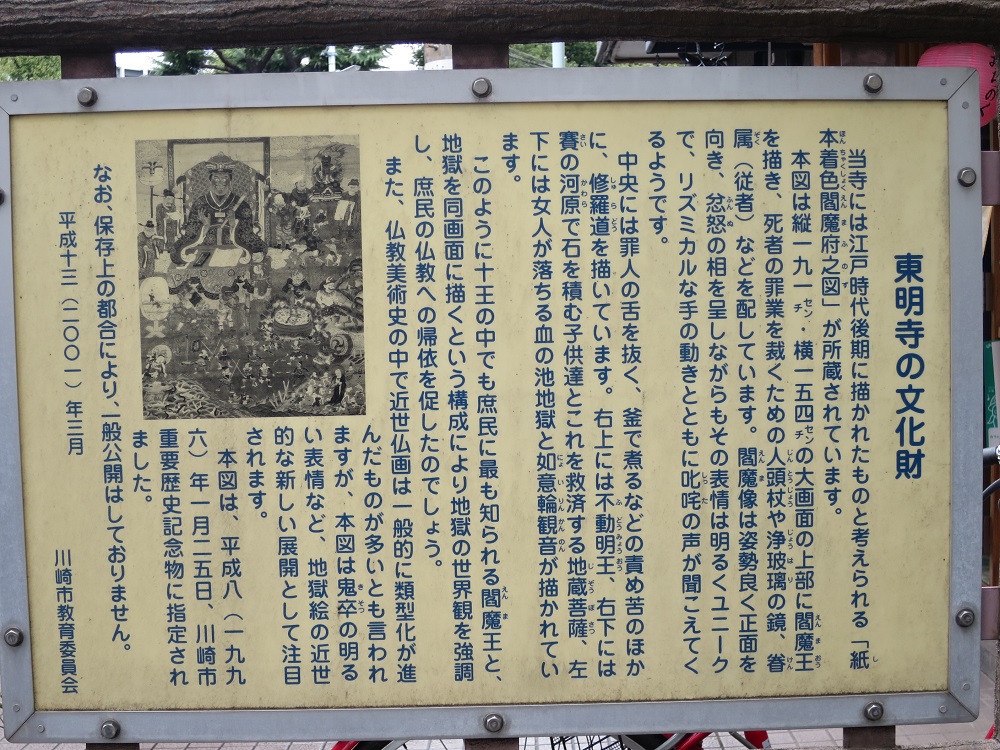 東明寺の文化財
当寺には江戸時代後期に描かれたものと考えられる「紙
本着色閻魔府之図」が所蔵されています。
本図は縦一九一センチ・横一五四センチの大画面の上部に閻魔王
を描き、死者の罪業を裁くための人頭杖や浄玻璃の鏡、眷
属（従者）などを配しています。閻魔像は姿勢良く正面を
向き、忿怒の相を呈しながらもその表情は明るくユニーク
で、リズミカルな手の動きとともに叱咤の声が聞こえてく
るようです。
中央には罪人の舌を抜く、釜で煮るなどの責め苦のほか
に、修羅道を描いています。右上には不動明王、右下には
賽の河原で石を積む子供達とこれを救済する地蔵菩薩、左
下には女人が落ちる血の池地獄と如意輪観音が描かれてい
ます。
このように十王の中でも庶民に最も知られる閻魔王と、
地獄を同画面に描くという構成により地獄の世界観を強調
し、庶民の仏教への帰依を促したのでしょう。
また、仏教美術史の中で近世仏画は一般的に類型化が進
んだものが多いとも言われ
ますが、本図は鬼卒の明る
い表情など、地獄絵の近世
的な新しい展開として注目
されます。
本図は、平成八（一九九
六）年一月二五日、川崎市
重要歴史記念物に指定され
ました。
なお、保存上の都合により、一般公開はしておりません。
平成十三（二〇〇一）年三月
川崎市教育委員会